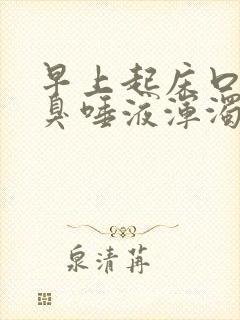 早上起床口
臭唾液浑浊
泉清苒